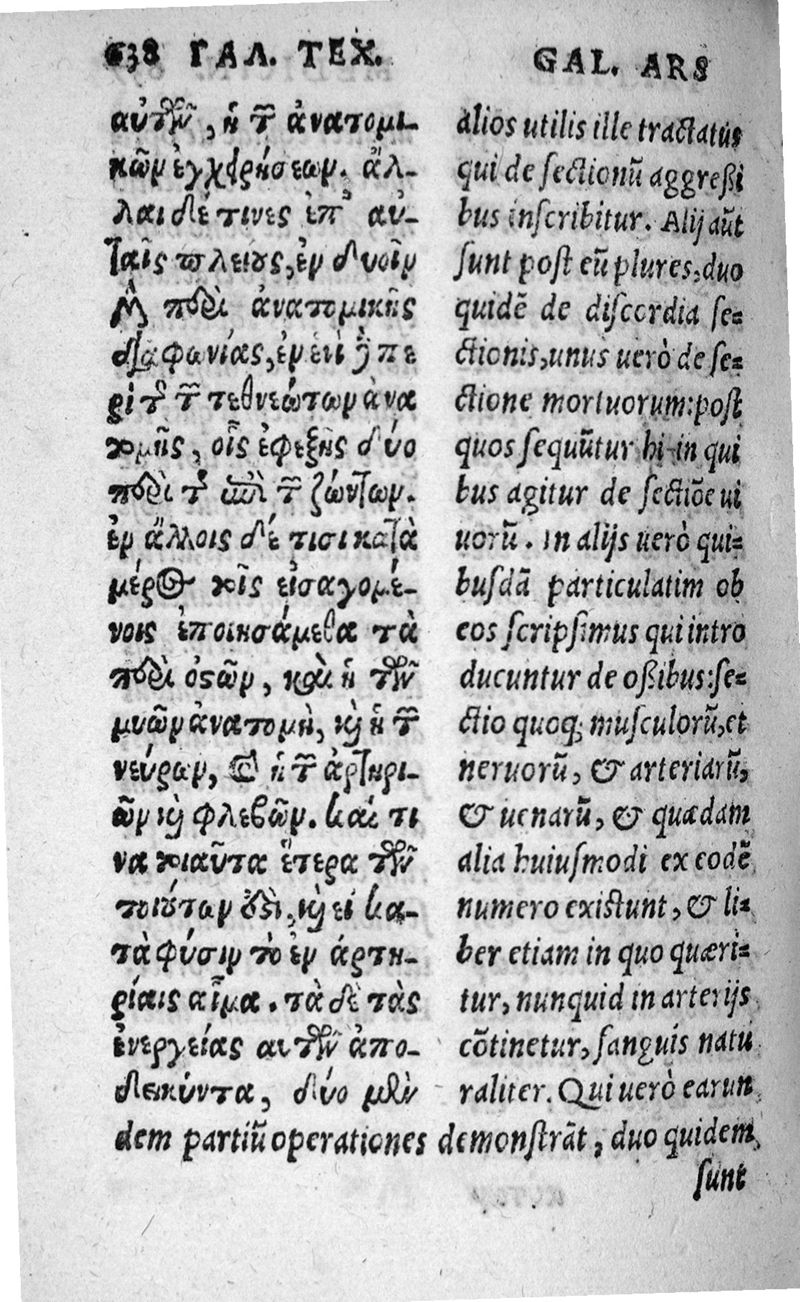 638 ΓΑΛ. ΤΕΧ.
αὐτῶν, ἡ τῶν ἀνατομι-
κῶν ἐγχειρήσεων. ἄλ-
λαι δέ τινες ἐπ' αὐ-
ταῖς πλείους, ἐν δυοῖν
μὲν περὶ ἀνατομικῆς
διαφωνίας, ἐν ἑνὶ δὲ πε
ρὶ τῆς τῶν τεθνεώτων ἀνα
τομῆς, οἷς ἐφεξῆς δύο
περὶ τῆς ἐπὶ τῶν ζώντων.
ἐν ἄλλοις δέ τισι κατὰ
μέρος τοῖς εἰσαγομέ-
νοις ἐποιησάμεθα τὰ
περὶ ὀστῶν, καὶ ἡ τῶν
μυῶν ἀνατομὴ, καὶ ἡ τῶν
νεύρων, καὶ ἡ τῶν ἀρτηρι-
ῶν καὶ φλεβῶν. καί τι
να τοιαῦτα ἕτερα τῶν
τοιούτων ἐστὶ, καὶ εἰ κα-
τὰ φύσιν τὸ ἐν ἀρτη-
ρίαις αἷμα. τὰ δὲ τὰς
ἐνεργείας αυτῶν ἀπο-
δεικύντα, δύο μὲν
GAL. ARS
alios utilis ille tractatus
qui de sectionũ aggreßi
bus inscribitur. Alij aũt
sunt post eũ plures, duo
quidẽ de discordia se-
ctionis, unus uerò de se-
ctione mortuorum: post
quos sequũtur hi in qui
bus agitur de sectiõe ui
uorũ. In alijs uerò qui-
busdã particulatim ob
eos scripsimus qui intro
ducuntur de oßibus: se-
ctio quoq; musculorũ, et
neruorũ, & arteriarũ,
& uenarũ, & quædam
alia huiusmodi ex eodẽ
numero existunt, & li-
ber etiam in quo quæri-
tur, nunquid in arterijs
cõtinetur, sanguis natu
raliter. Qui uerò earun
dem partiũ operationes demonstrãt, duo quidem
sunt